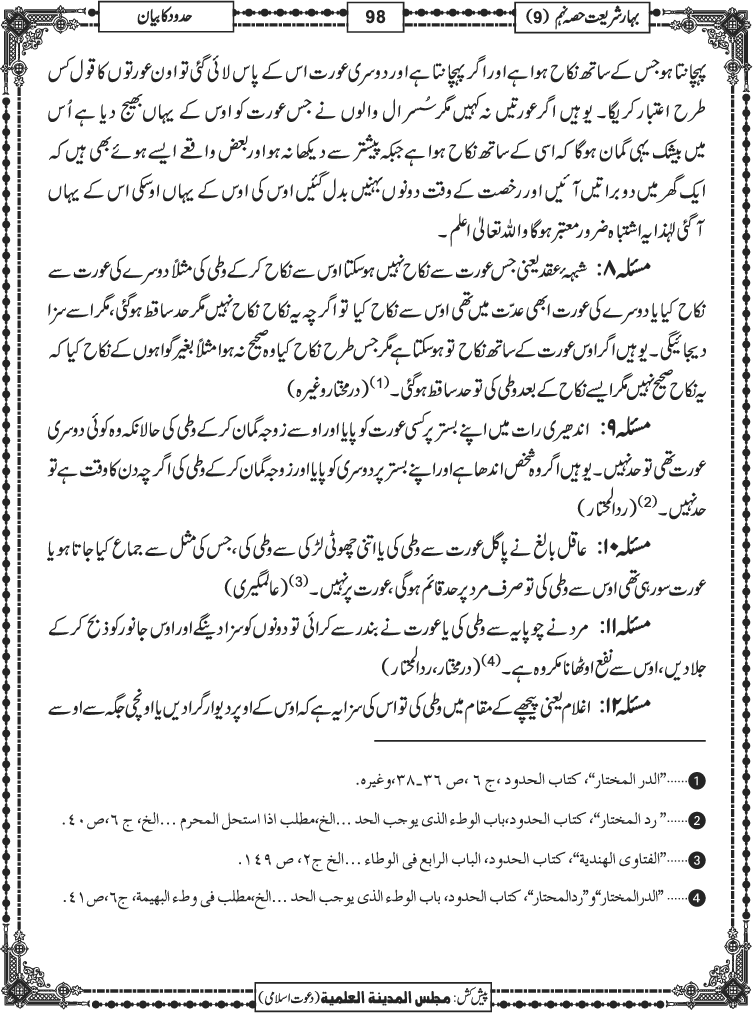 بہار شریعت حصہ نہم (9)
98
حدود کا بیان
پہچانتا ہو جس کے ساتھ نکاح ہوا ہے اور اگر پہچانتا ہے اور دوسری عورت اس کے پاس لائی گئی تو اون عورتوں کا قول کس
طرح اعتبار کریگا۔ یوہیں اگر عورتیں نہ کہیں مگر سُسرال والوں نے جس عورت کو اوس کے یہاں بھیج دیا ہے اُس
میں بیشک یہی گمان ہوگا کہ اسی کے ساتھ نکاح ہوا ہے جبکہ پیشتر سے دیکھا نہ ہو اور بعض واقعے ایسے ہوئے بھی ہیں کہ
ایک گھر میں دو براتیں آئیں اور رخصت کے وقت دونوں بہنیں بدل گئیں اوس کی اوس کے یہاں اوسکی اس کے یہاں
آگئی لہٰذا یہ اشتباہ ضرور معتبر ہوگا واللہ تعالیٰ اعلم ۔
مسئلہ ۸: شبہۂ عقد یعنی جس عورت سے نکاح نہیں ہوسکتا اوس سے نکاح کرکے وطی کی مثلاً دوسرے کی عورت سے
نکاح کیا یا دوسرے کی عورت ابھی عدّت میں تھی اوس سے نکاح کیا تو اگرچہ یہ نکاح نکاح نہیں مگر حد ساقط ہوگئی، مگر اسے سزا
دیجائیگی۔ یوہیں اگر اوس عورت کے ساتھ نکاح تو ہوسکتا ہے مگر جس طرح نکاح کیا وہ صحیح نہ ہوا مثلاً بغیر گواہوں کے نکاح کیا کہ
یہ نکاح صحیح نہیں مگر ایسے نکاح کے بعد وطی کی تو حد ساقط ہوگئی۔(1) (درمختار وغیرہ)
مسئلہ ۹: اندھیری رات میں اپنے بستر پر کسی عورت کو پایا اور اوسے زوجہ گمان کرکے وطی کی حالانکہ وہ کوئی دوسری
عورت تھی تو حد نہیں۔ یوہیں اگر وہ شخص اندھا ہے اور اپنے بستر پر دوسری کو پایا اور زوجہ گمان کرکے وطی کی اگرچہ دن کا وقت ہے تو
حد نہیں۔(2) (ردالمحتار)
مسئلہ ۱۰: عاقل بالغ نے پاگل عورت سے وطی کی یا اتنی چھوٹی لڑکی سے وطی کی، جس کی مثل سے جماع کیا جاتا ہو یا
عورت سو رہی تھی اوس سے وطی کی تو صرف مرد پر حد قائم ہوگی، عورت پر نہیں۔(3) (عالمگیری)
مسئلہ ۱۱: مرد نے چوپایہ سے وطی کی یا عورت نے بندر سے کرائی تو دونوں کو سزا دینگے اور اوس جانور کو ذبح کرکے
جلا دیں، اوس سے نفع اوٹھانا مکروہ ہے۔(4) (درمختار، ردالمحتار)
مسئلہ ۱۲: اغلام یعنی پیچھے کے مقام میں وطی کی تو اس کی سزا یہ ہے کہ اوس کے اوپر دیوار گرادیں یا اونچی جگہ سے اوسے
1......"الدر المختار"، کتاب الحدود ،ج ٦ ،ص ٣٦۔٣٨،وغیرہ.
2......" رد المحتار"، کتاب الحدود،باب الوطء الذی یوجب الحد ...الخ،مطلب اذا استحل المحرم ...الخ، ج ٦،ص ٤٠.
3......"الفتاوی الھندیة"، کتاب الحدود، الباب الرابع فی الوطاء ...الخ ج٢، ص ١٤٩.
4......"الدرالمختار"و"ردالمحتار"، کتاب الحدود، باب الوطء الذی یوجب الحد ...الخ،مطلب فی وطء البھیمة، ج٦،ص٤١.
پیش کش: مجلس المدینة العلمیة (دعوت اسلامی)